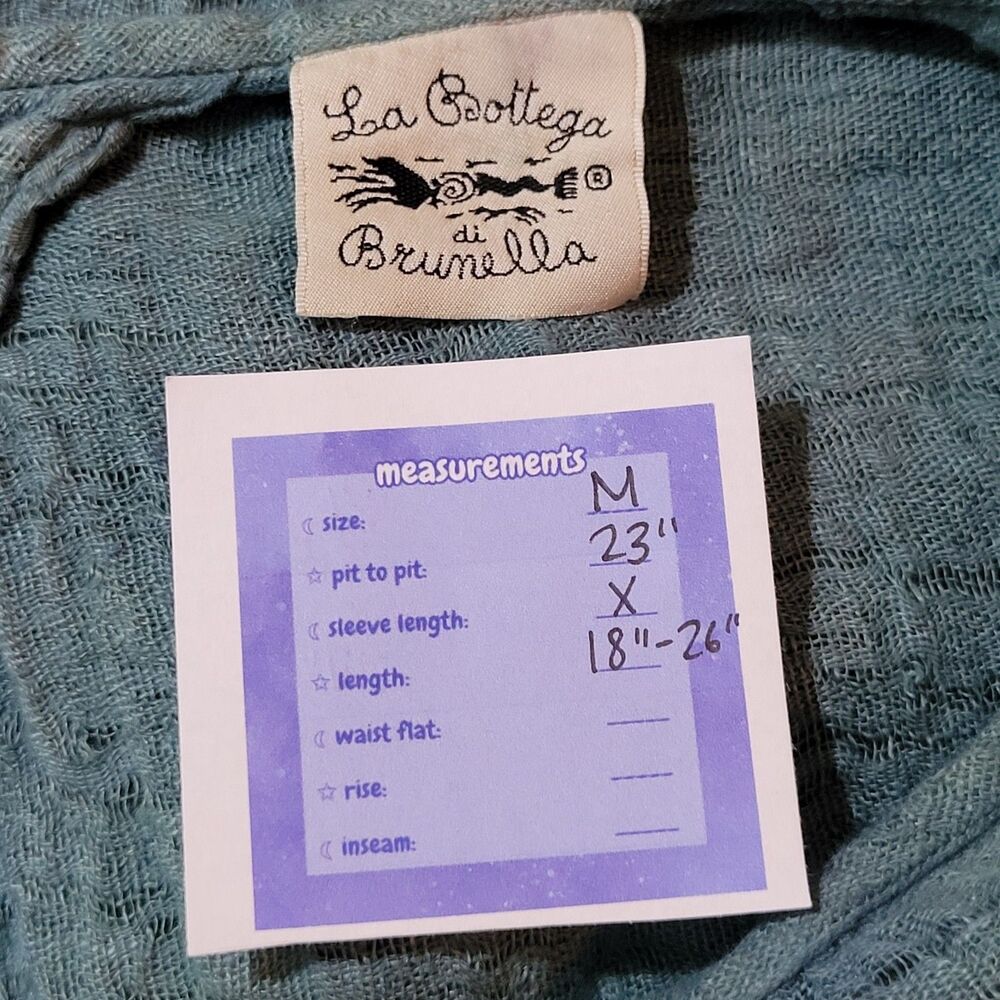 La Bottega
®
di
Brunella
measurements
size: M
pit to pit: 23"
sleeve length: X
length: 18"-26"
waist flat:
rise:
inseam: